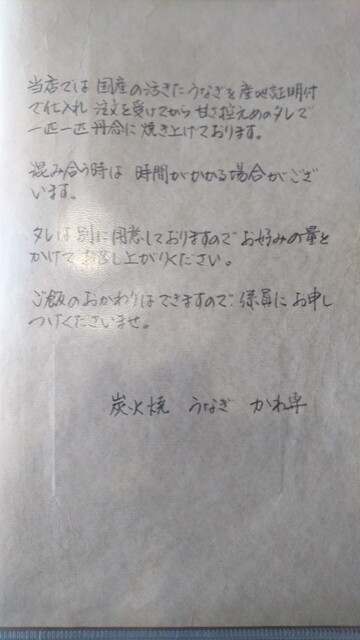 当店では 国産の活きたうなぎを産地証明付
で仕入れ 注文を受けてから 甘さ控えめのタレで
一匹一匹 丹念に 焼き上げております。
混み合う時は 時間がかかる場合がござ
います。
タレは 別に用意しておりますので お好みの量を
かけて お召し上がりください。
ご飯のおかわりはできますので、係員に お申し
つけくださいませ。
炭火焼 うなぎ かね専